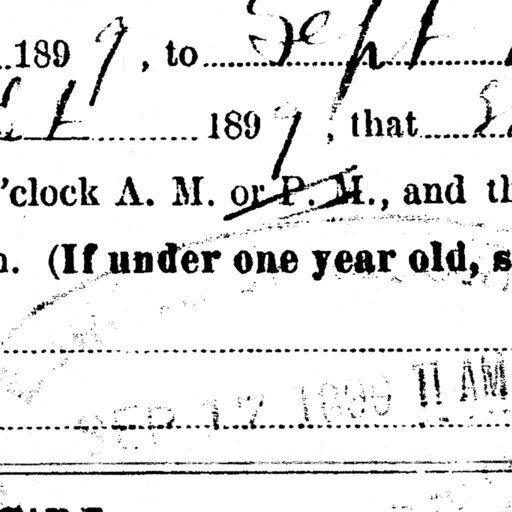 1899, to Sept
1899, that
'clock A. M. or P. M., and th
n. (If under one year old, s
SEP 17 1899 11 AM